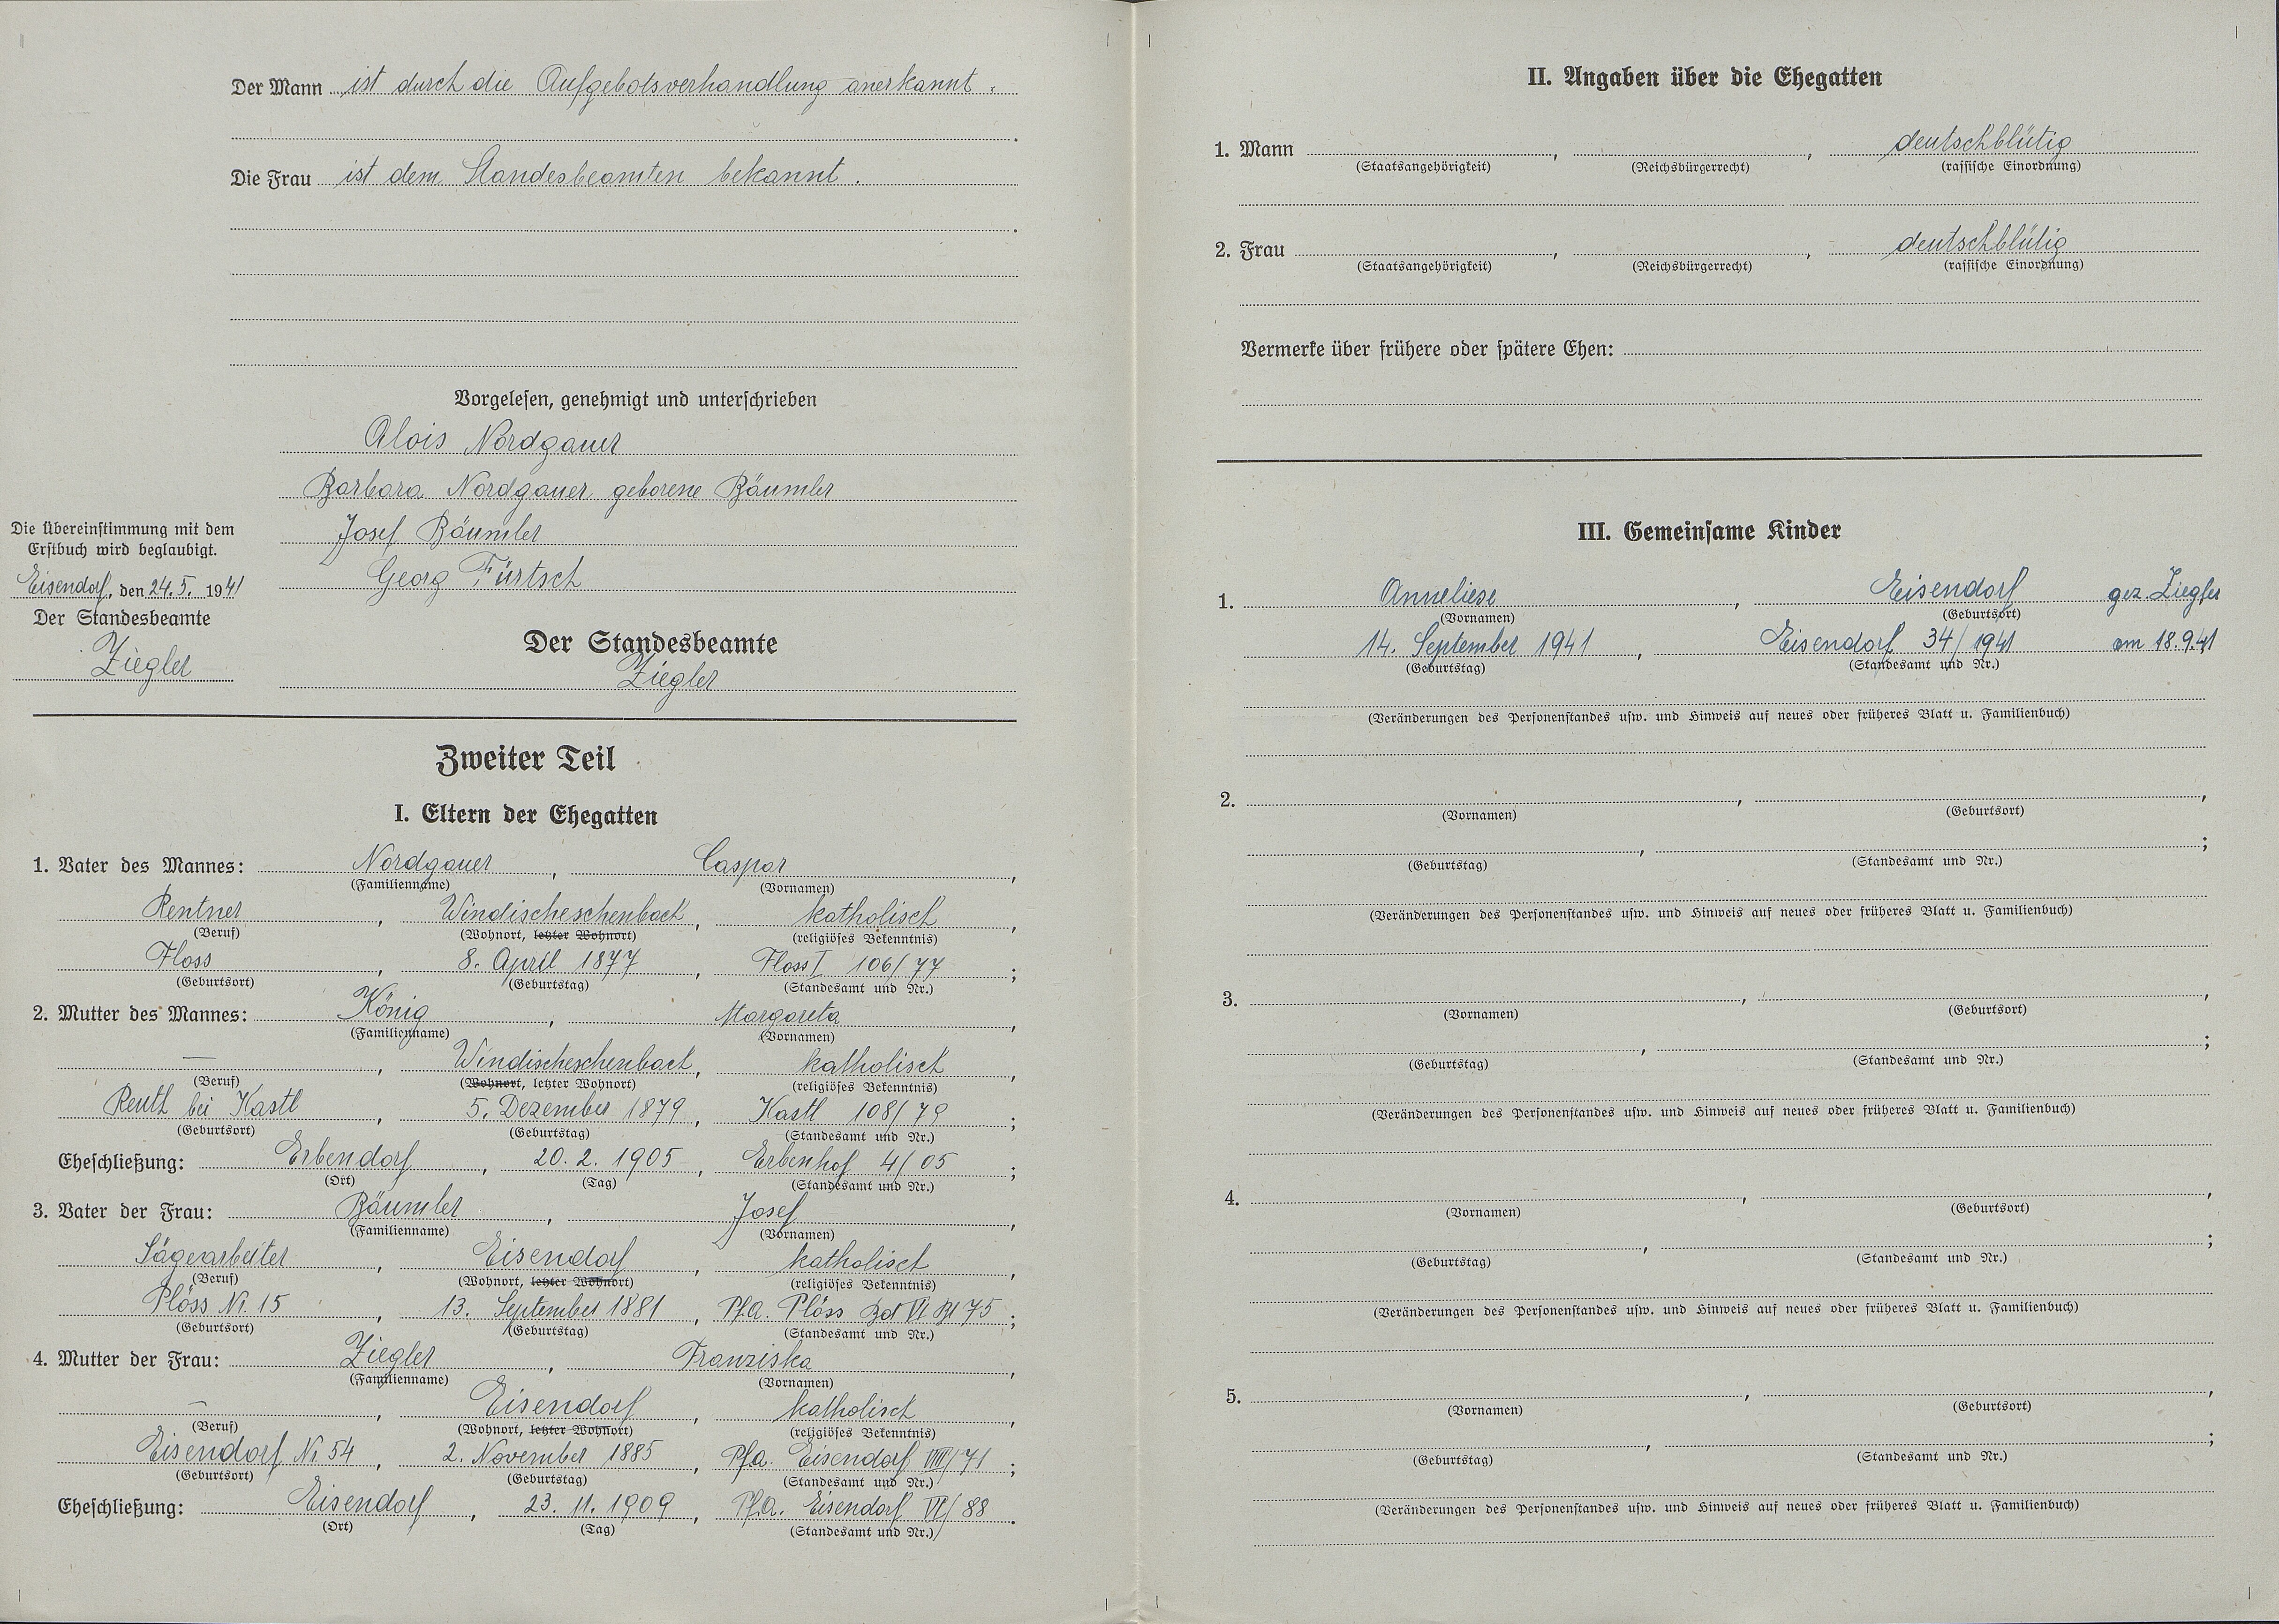 Der Mann ist durch die Aufgebotsverhandlung anerkannt.
Die Frau ist dem Standesbeamten bekannt.
Vorgelesen, genehmigt und unterschrieben
Alois Nordgauer
Barbara Nordgauer geborene Bäumler
Josef Bäumler
Georg Fürtsch
Die Übereinstimmung mit dem
Erstbuch wird beglaubigt.
Eisendorf, den 24.5. 1941
Der Standesbeamte
Ziegler
Der Standesbeamte
Ziegler
Zweiter Teil
I. Eltern der Ehegatten
1. Vater des Mannes: Nordgauer, Caspar,
(Familienname) (Vornamen)
Rentner, Windischeschenbach, katholisch,
(Beruf) (Wohnort, letzter Wohnort) (religiöses Bekenntnis)
Floss, 8. April 1877, Floss I 106/77;
(Geburtsort) (Geburtstag) (Standesamt und Nr.)
2. Mutter des Mannes: König, Margareta,
(Familienname) (Vornamen)
—, Windischeschenbach, katholisch,
(Beruf) (Wohnort, letzter Wohnort) (religiöses Bekenntnis)
Reuth bei Kastl, 5. Dezember 1879, Kastl 108/79;
(Geburtsort) (Geburtstag) (Standesamt und Nr.)
Eheschließung: Erbendorf, 20.2.1905, Erbenhof 4/05;
(Ort) (Tag) (Standesamt und Nr.)
3. Vater der Frau: Bäumler, Josef,
(Familienname) (Vornamen)
Sägearbeiter, Eisendorf, katholisch,
(Beruf) (Wohnort, letzter Wohnort) (religiöses Bekenntnis)
Plöss Nr. 15, 13. September 1881, Pfa. Plöss Bd VI Bl 75;
(Geburtsort) (Geburtstag) (Standesamt und Nr.)
4. Mutter der Frau: Ziegler, Franziska,
(Familienname) (Vornamen)
—, Eisendorf, katholisch,
(Beruf) (Wohnort, letzter Wohnort) (religiöses Bekenntnis)
Eisendorf Nr. 54, 2. November 1885, Pfa. Eisendorf VIIII/71;
(Geburtsort) (Geburtstag) (Standesamt und Nr.)
Eheschließung: Eisendorf, 23.11.1909, Pfa. Eisendorf VI/88.
(Ort) (Tag) (Standesamt und Nr.)
II. Angaben über die Ehegatten
1. Mann , , deutschblütig
(Staatsangehörigkeit) (Reichsbürgerrecht) (rassische Einordnung)
2. Frau , , deutschblütig
(Staatsangehörigkeit) (Reichsbürgerrecht) (rassische Einordnung)
Vermerke über frühere oder spätere Ehen:
III. Gemeinsame Kinder
1. Anneliese, Eisendorf gez. Ziegler
(Vornamen) (Geburtsort)
14. September 1941, Eisendorf 34/1941 am 18.9.41
(Geburtstag) (Standesamt und Nr.)
(Veränderungen des Personenstandes usw. und Hinweis auf neues oder früheres Blatt u. Familienbuch)
2. , ,
(Vornamen) (Geburtsort)
, ;
(Geburtstag) (Standesamt und Nr.)
(Veränderungen des Personenstandes usw. und Hinweis auf neues oder früheres Blatt u. Familienbuch)
3. , ,
(Vornamen) (Geburtsort)
, ;
(Geburtstag) (Standesamt und Nr.)
(Veränderungen des Personenstandes usw. und Hinweis auf neues oder früheres Blatt u. Familienbuch)
4. , ,
(Vornamen) (Geburtsort)
, ;
(Geburtstag) (Standesamt und Nr.)
(Veränderungen des Personenstandes usw. und Hinweis auf neues oder früheres Blatt u. Familienbuch)
5. , ,
(Vornamen) (Geburtsort)
, ;
(Geburtstag) (Standesamt und Nr.)
(Veränderungen des Personenstandes usw. und Hinweis auf neues oder früheres Blatt u. Familienbuch)